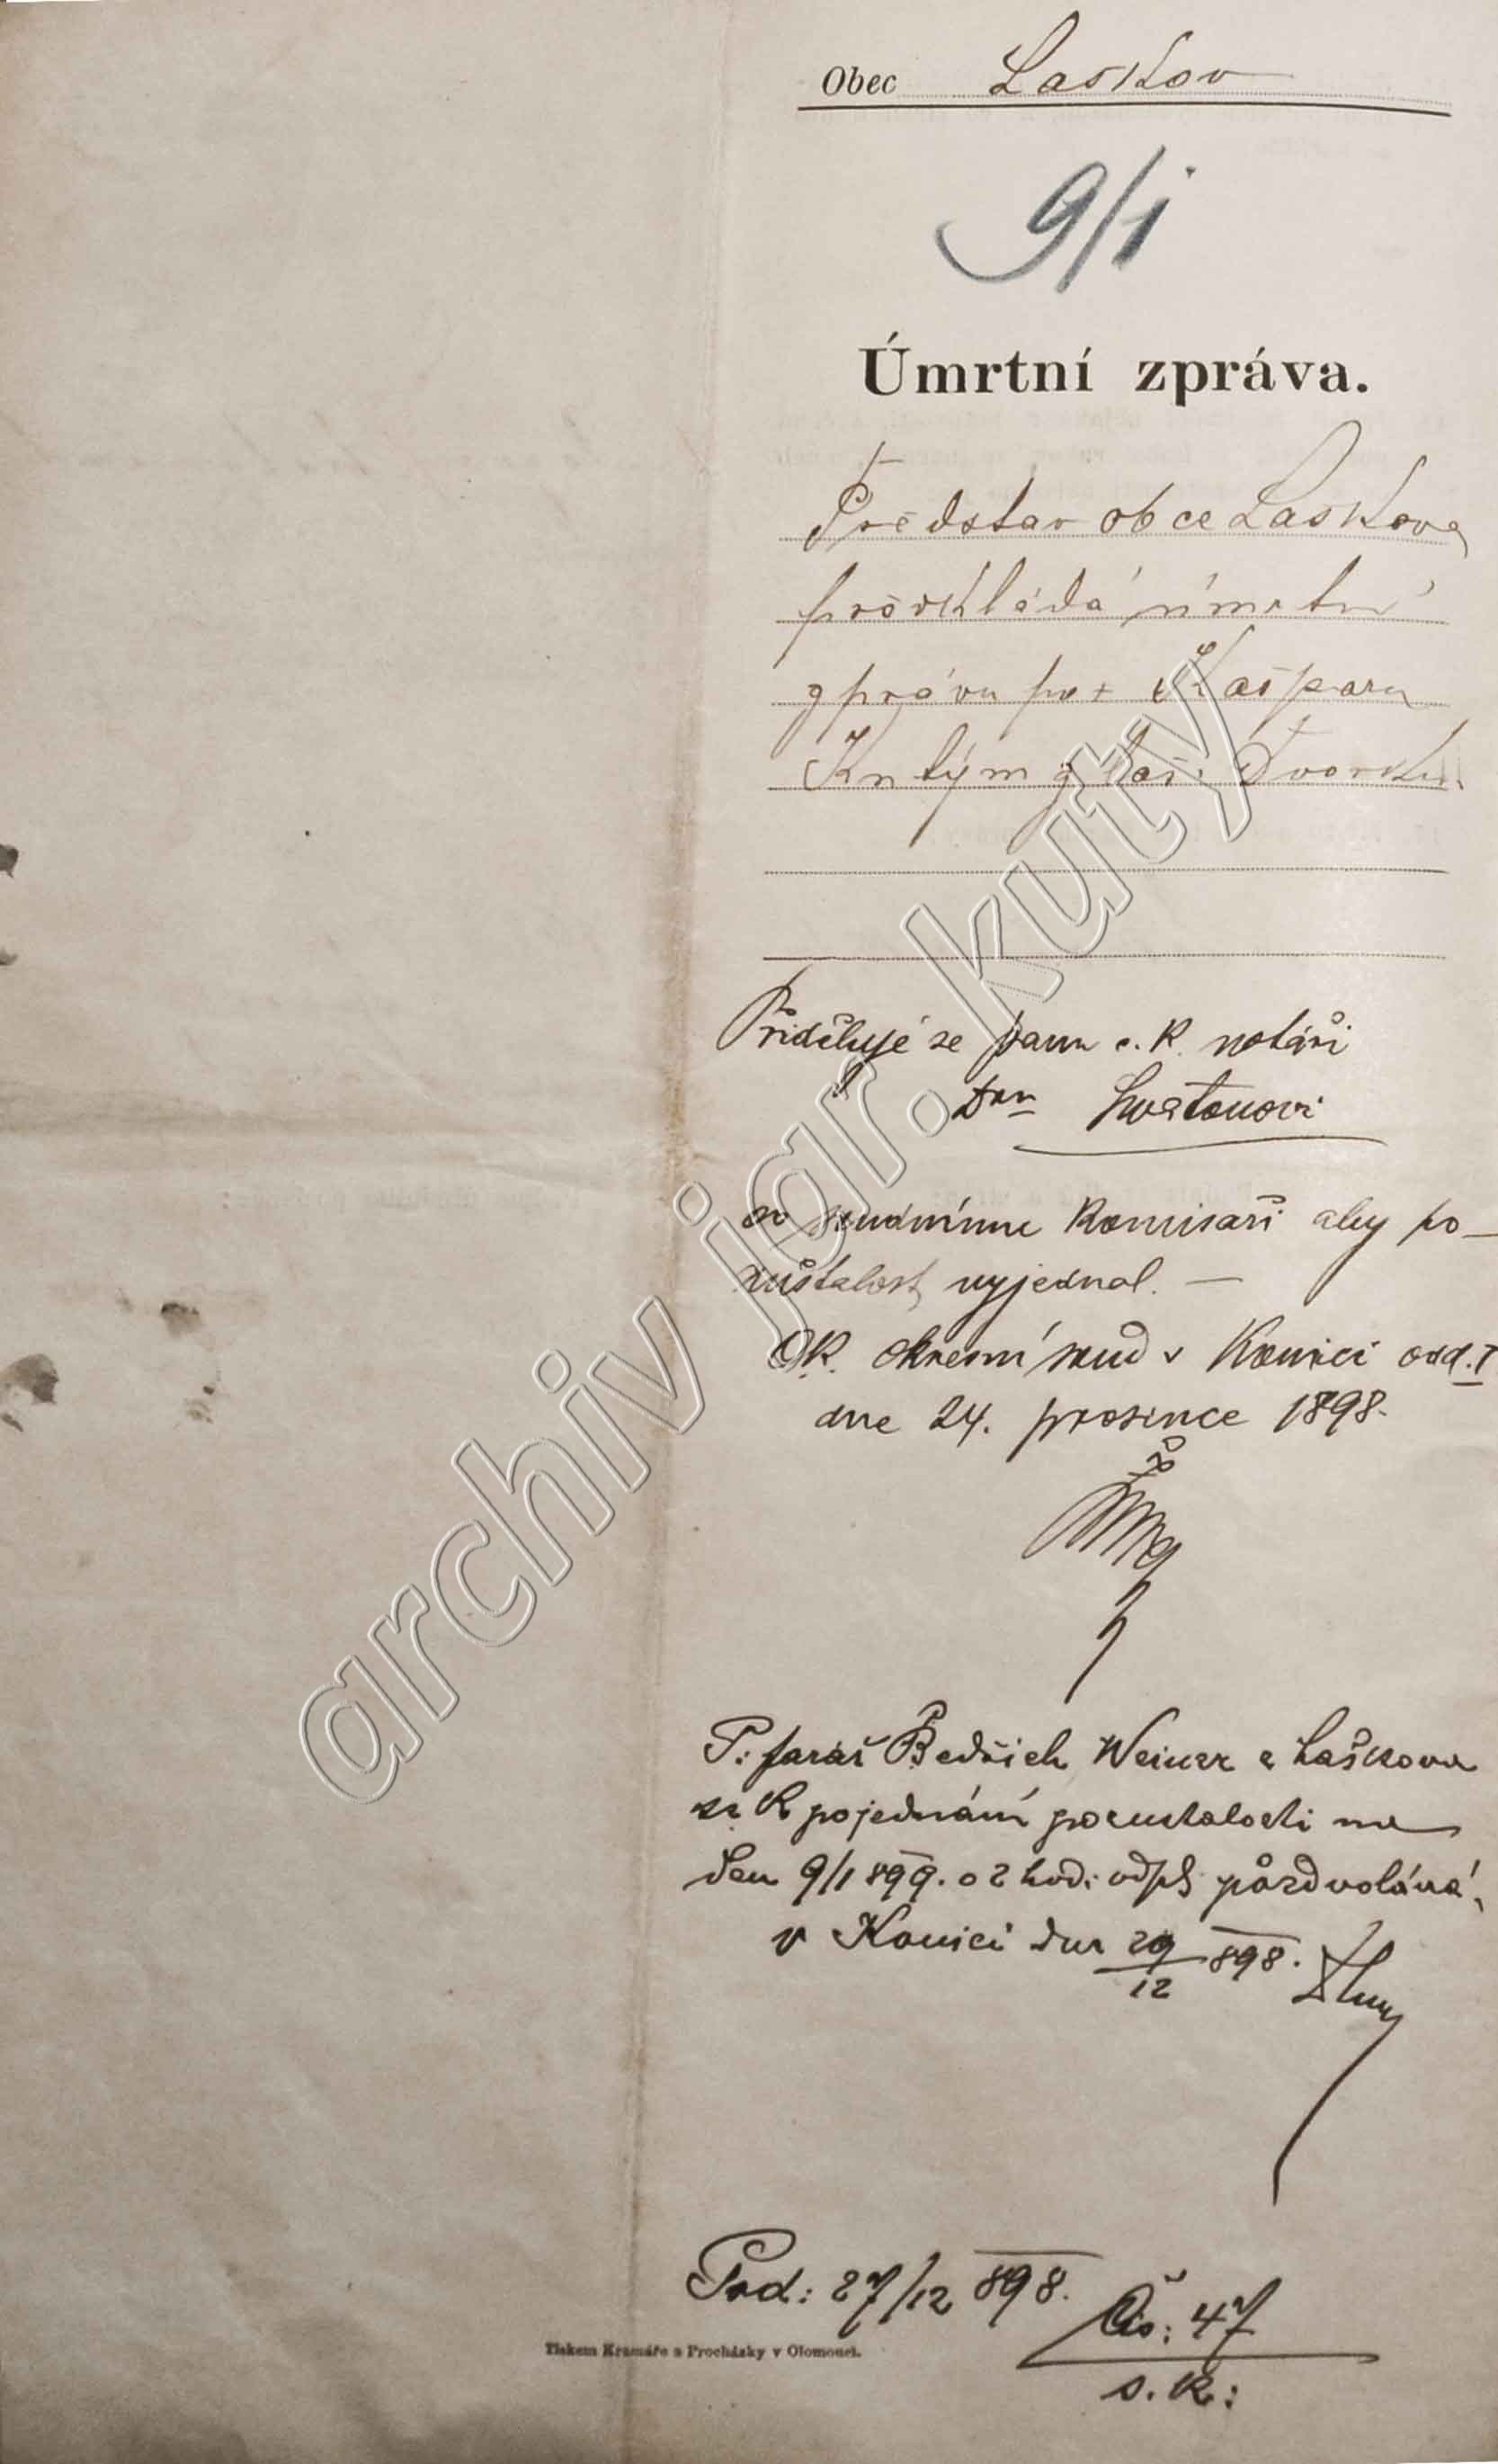 Obec Laskov
9/1
Úmrtní zpráva.
Představ obce Laskova
předkládá úmrtní
zprávu po † Kašparu
Kutým z Laš. Dvorku
Přiděluje se panu c. k. notáři
Dru Svatonovi
co soudnímu komisaři aby po-
zůstalost vyjednal. —
C. k. okresní soud v Konici odd. I
dne 24. prosince 1898.
P. farář Bedřich Weiner z Laškova
se k pojednání pozustalosti na
den 9/1 899. o 2 hod. odpl. předvolává,
v Konici dne 29/12 898.
Pod: 27/12 898.
Čís: 47
s. k:
Tiskem Kramáře a Procházky v Olomouci.
archiv jar. kuty